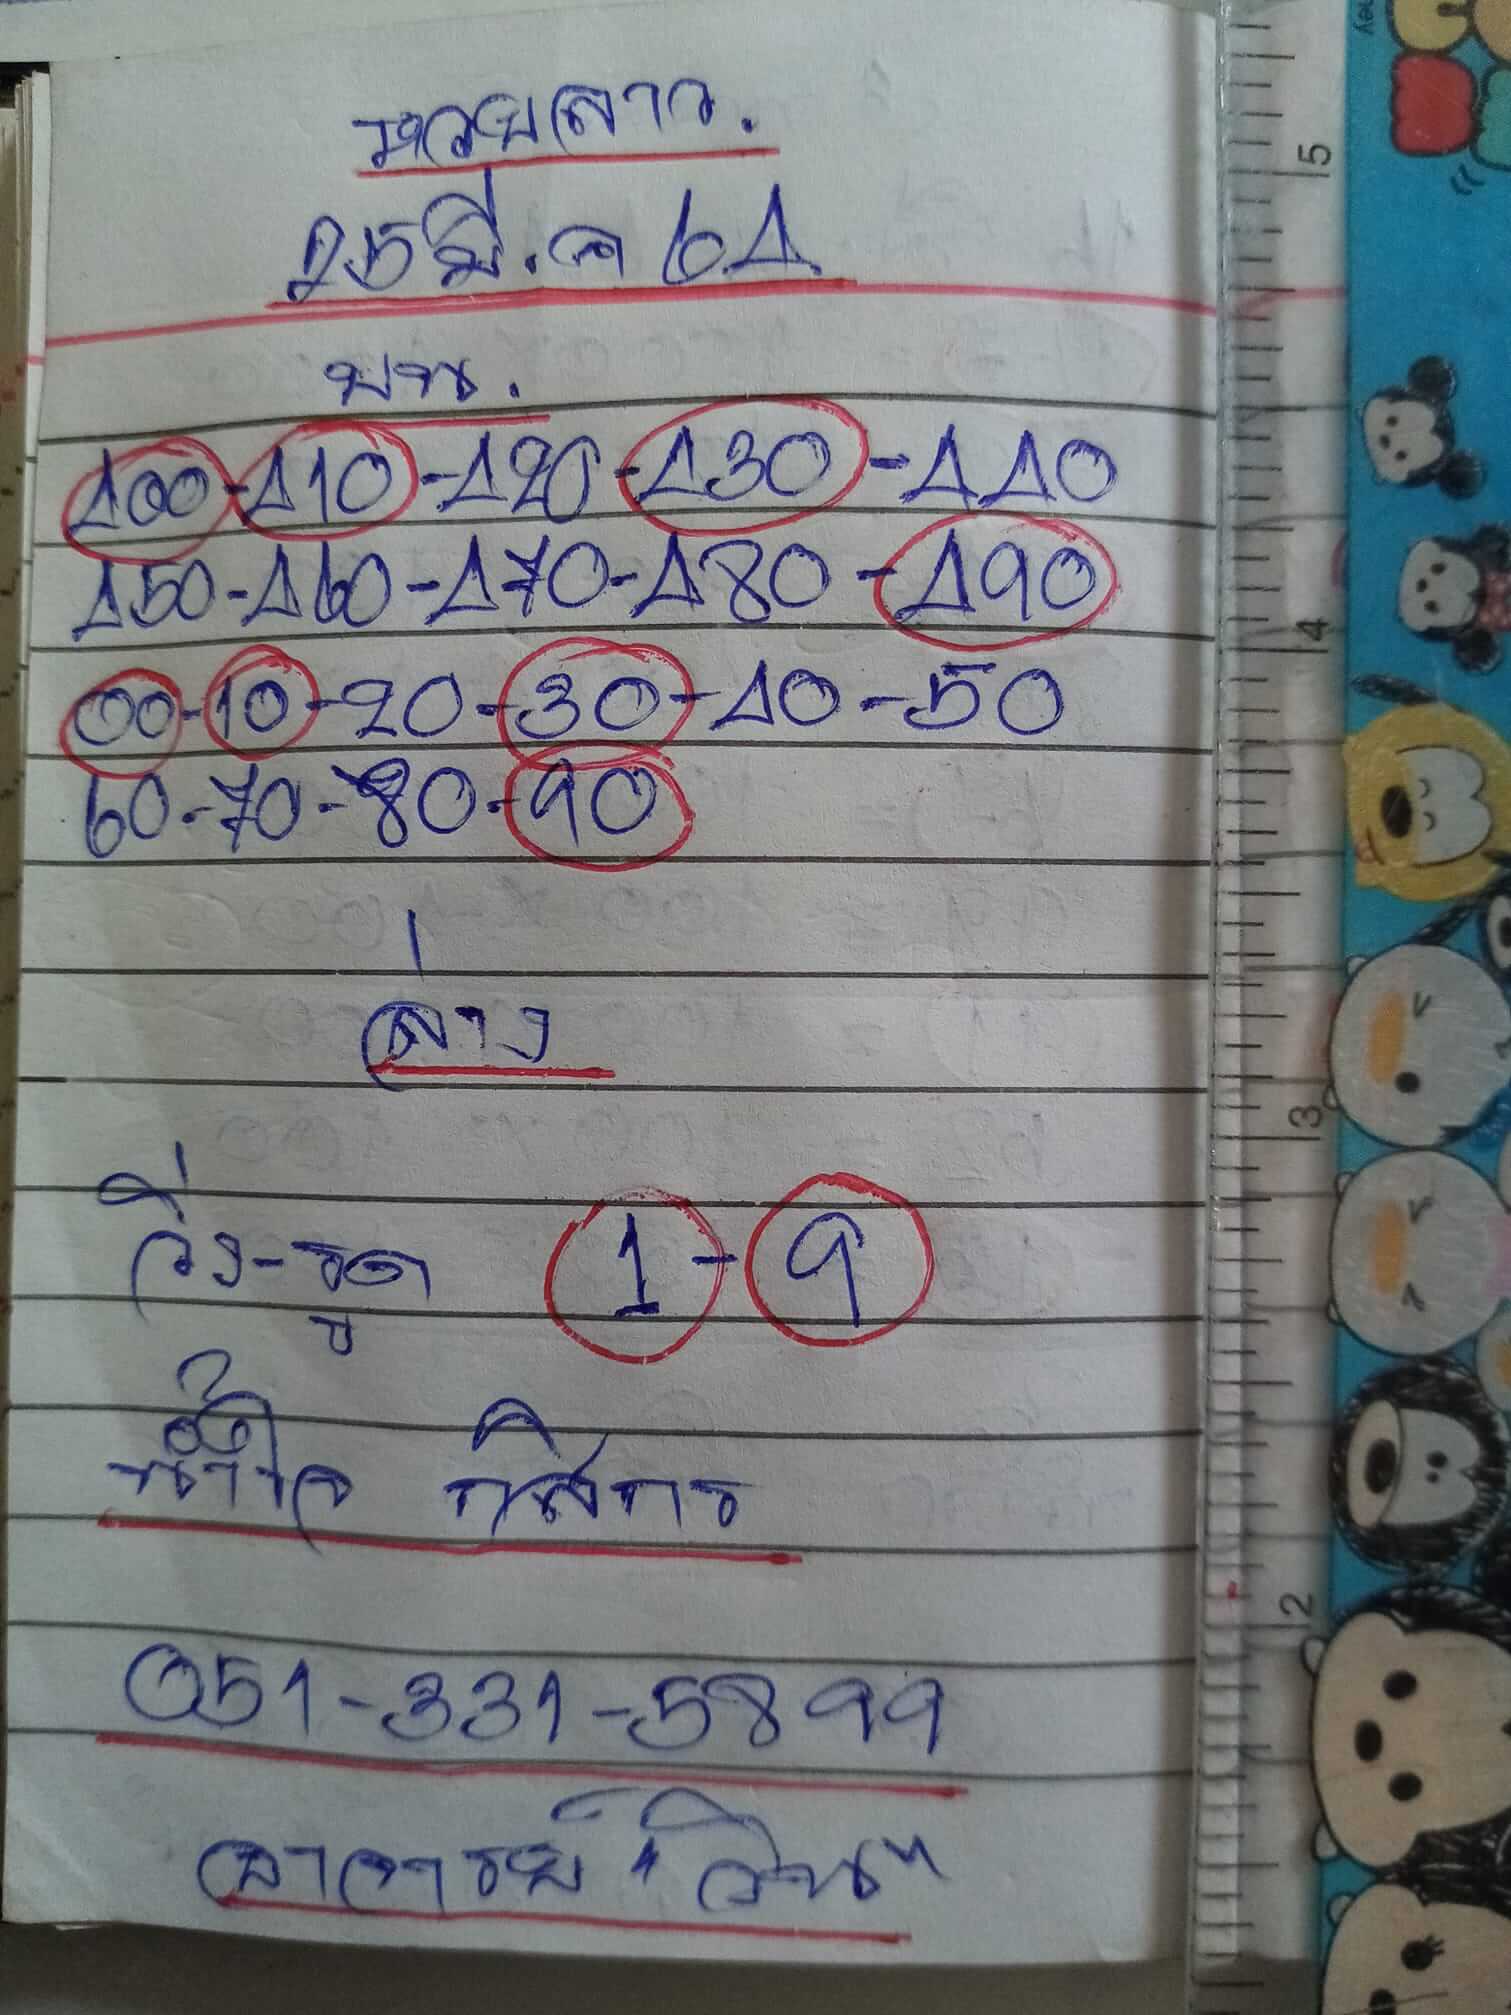 หวยลาว.
25 มี.ค 64.
บน.
400-410-420-430-440
450-460-470-480-490
00-10-20-30-40-50
60-70-80-90
ล่าง
วิ่ง-รูด 1-9
น้ำใจ กสิกร
051-331-5899
อาจารย์ "วิน"
5
4
3
2